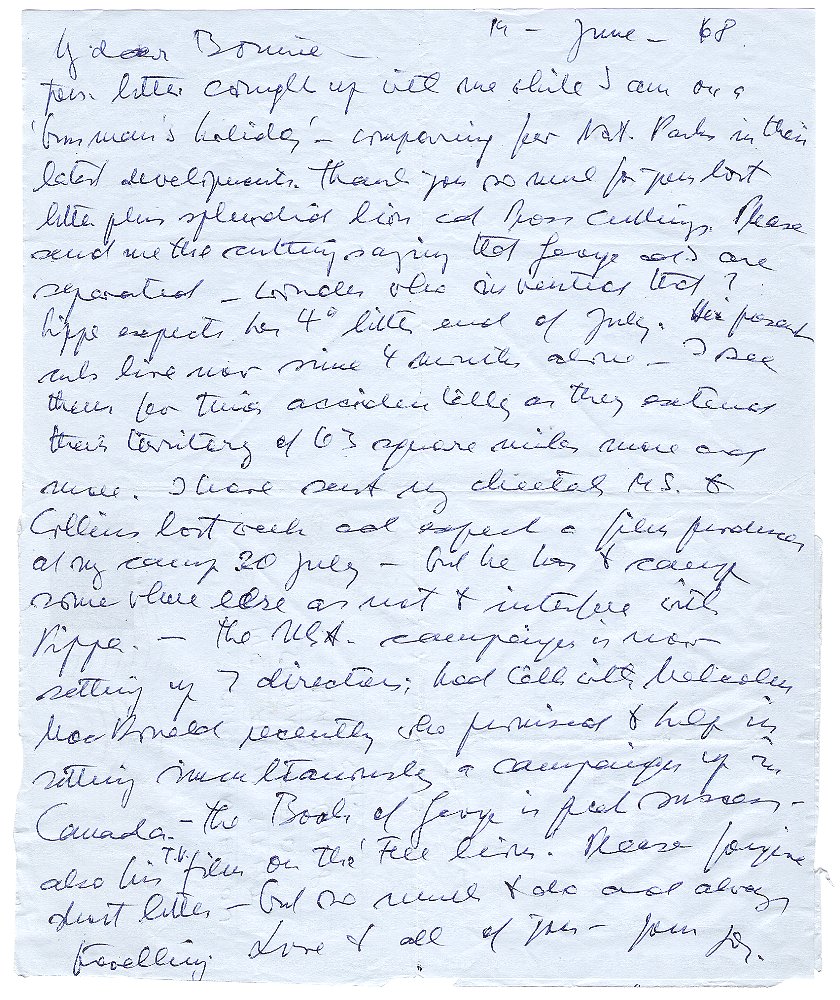 19 - June - 68
My dear Bonnie -
your letter caught up with me while I am on a
'busman's holiday' - comparing for Nat. Parks in their
latest developments. Thank you so much for your last
letter plus splendid lion ad Press cuttings. Please
send me the cutting saying that George ad I are
separated - wonder who invented that?
Pippa expects her 4º litter end of July. Her present
cubs live now since 4 months alone - I see
them few times accidentally as they extend
their territory of 63 square miles more and
more. I have sent my cheetah M.S. to
Collins last week ad expect a film producer
at my camp 20 July - but he has to camp
some where else as not to interfere with
Pippa. - The USA. campaign is now
setting up 7 directors; had talk with Malcolm
MacDonald recently who promised to help in
setting simultaniously a campaign up in
Canada. - The Book of George is great success -
also his T.V. film on the Free lions. Please forgive
short letter - but so much to do and always
travelling. Love to all of you - your Joy.